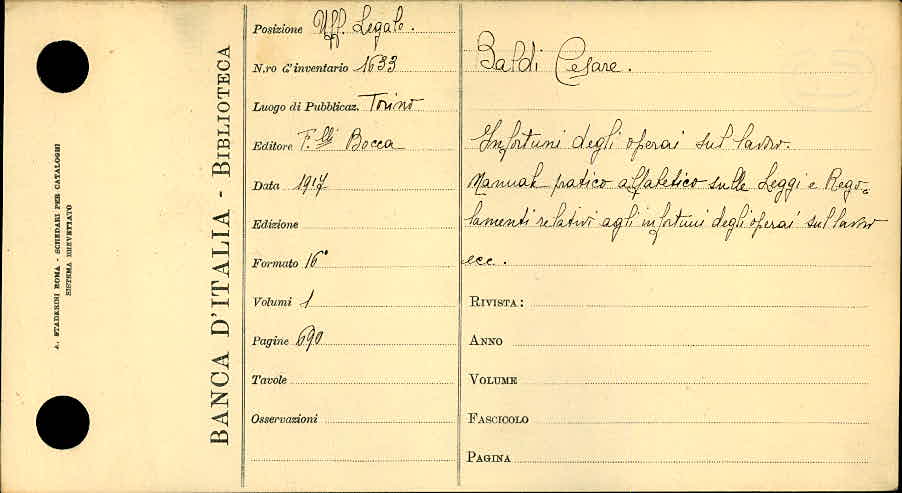 A. STADERINI ROMA - SCHEDARI PER CATALOGHI
SISTEMA BREVETTATO
BANCA D'ITALIA - BIBLIOTECA
Posizione Uff. Legale.
N.ro d'inventario 1633
Luogo di Pubblicaz. Torino
Editore F.lli Bocca
Data 1917
Edizione
Formato 16°
Volumi 1
Pagine 690
Tavole
Osservazioni
Baldi Cesare.
Infortuni degli operai sul lavoro.
Manuale pratico alfabetico sulle Leggi e Rego-
lamenti relativi agli infortuni degli operai sul lavoro
ecc.
RIVISTA:
ANNO
VOLUME
FASCICOLO
PAGINA